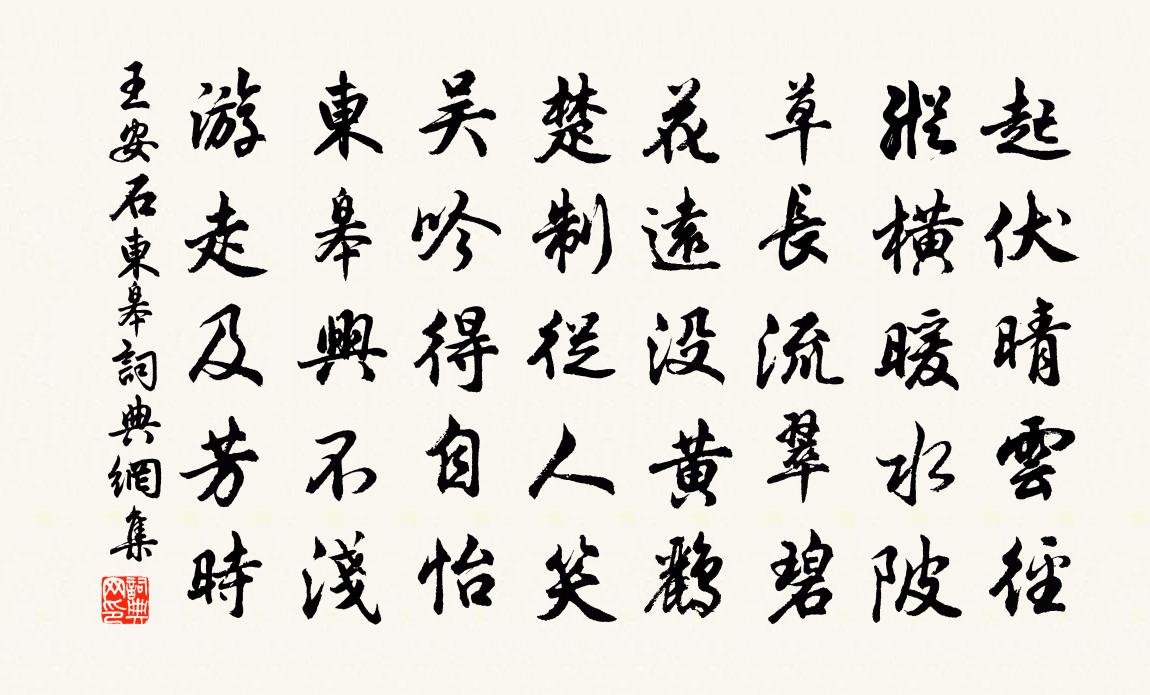 起伏晴雲徑
縱橫暖水陂
草長流翠碧
花遠没黃鸝
楚制從人笑
吴吟得自怡
東皋興不淺
游走及芳時
王安石東皋詞典網集
詞典網印